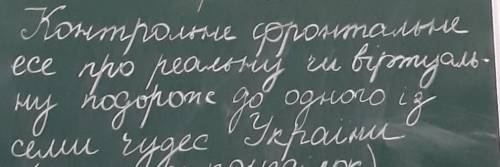 Контрольне фронтальне
есе про реальну чи віртуаль-
ну подорож до одного із
семи чудес України